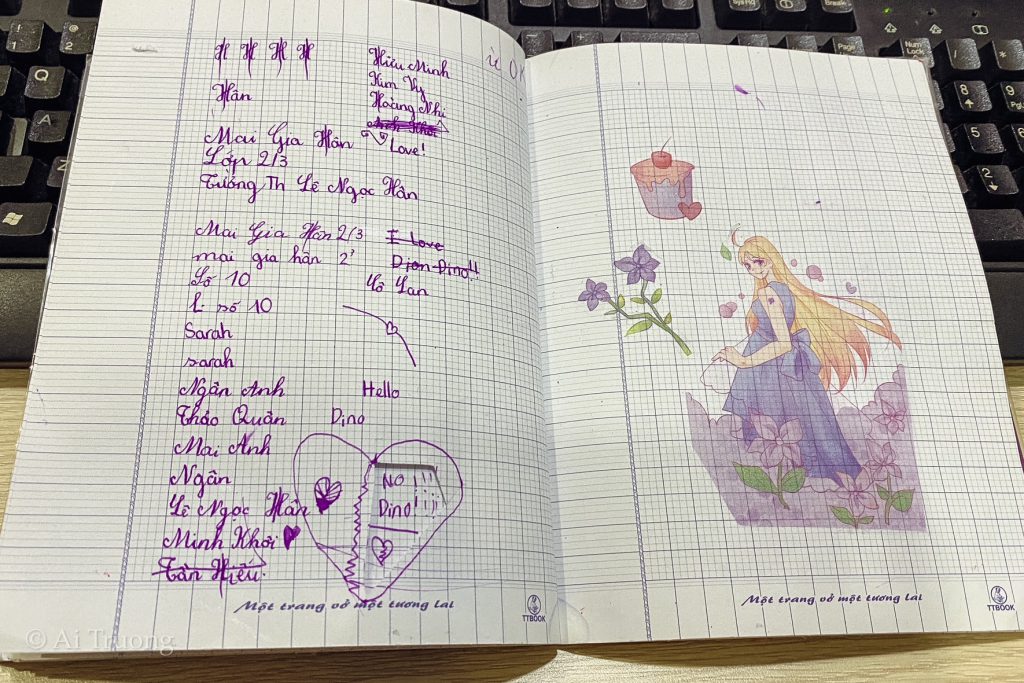 H H H H
Hân
Hữu Minh
Kim Vy
Hoàng Nhi
Anh Khôi
Love!
Mai Gia Hân
Lớp 2/3
Trường Th Lê Ngọc Hân
Mai Gia Hân 2/3
I Love
mai gia hân 2³
Dion Dino!!
Số 10
Lô Lan
L: số 10
Sarah
sarah
Ngân Anh
Hello
Thảo Quân
Dino
Mai Anh
Ngân
Lê Ngọc Hân
Minh Khôi
Tân Hiếu.
NO!!!
Dino!!!
Một trang vở một tương lai
TTBOOK
ừ OK
Một trang vở một tương lai
TTBOOK
© Ai Truong
! 1
@ 2
Q
A
Z
SysRq
Break
Page
Num Lock
8
9
Pg
5
6
2